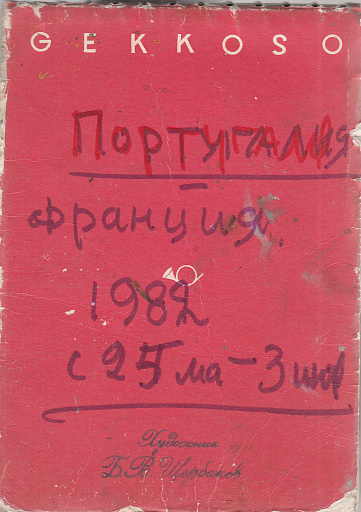 GEKKOSO
Португалия
Франция.
1982
с 25 ма - 3 июн
Художник
Б В Щербаков